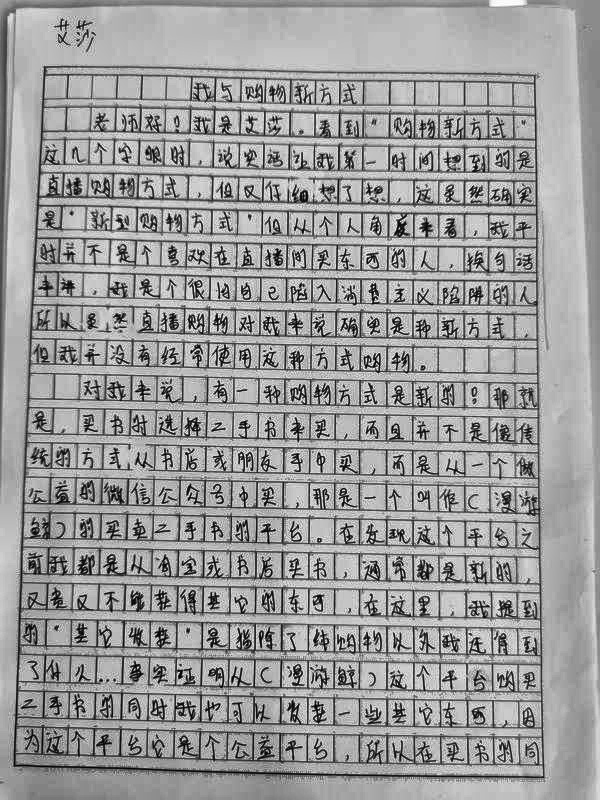 艾莎
我与购物新方式
老师好！我是艾莎。看到“购物新方式”
这几个字眼时，说实话让我第一时间想到的是
直播购物方式，但又仔细想了想，这虽然确实
是“新型购物方式”但从个人角度来看，我平
时并不是个喜欢在直播间买东西的人，换句话
来讲，我是个很怕自己陷入消费主义陷阱的人。
所以虽然直播购物对我来说确实是种新方式，
但我并没有经常使用这种方式购物。
对我来说，有一种购物方式是新的！那就
是，买书时选择二手书来买，而且并不是像传
统的方式从书店或朋友手中买，而是从一个做
公益的微信公众号中买，那是一个叫作（漫游
鲸）的买卖二手书的平台。在发现这个平台之
前我都是从淘宝或书店买书，通常都是新的，
又贵又不能获得其它的东西，在这里，我提到
的“其它收获”是指除了纯购物以外我还得到
了什么…事实证明从（漫游鲸）这个平台购买
二手书的同时我也可以收获一些其它东西，因
为这个平台它是个公益平台，所以在买书的同